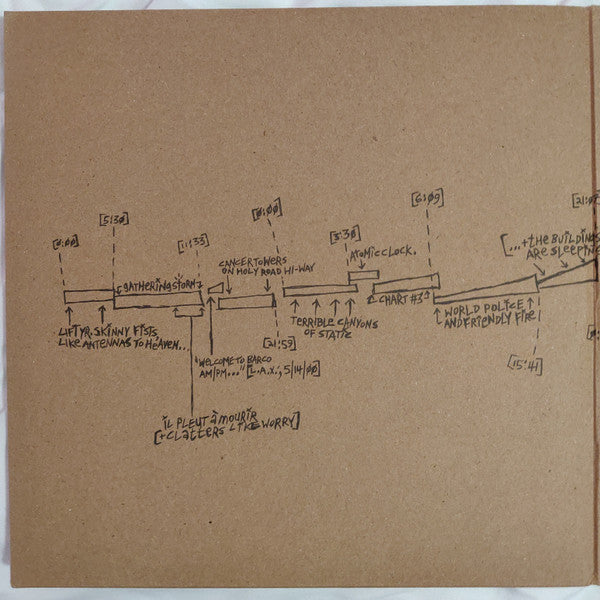 [0:00]
[5:30]
[11:33]
[0:00]
[3:30]
[6:09]
[21:0
"GATHERING STORM"
CANCERTOWERS
ON HOLY ROAD HI-WAY
ATOMIC CLOCK.
[...+THE BUILDINGS
ARE SLEEPING
LIFT YR. SKINNY FISTS
LIKE ANTENNAS TO HEAVEN...
TERRIBLE CANYONS
OF STATIC
CHART #3
WORLD POLICE
AND FRIENDLY FIRE
[21:59]
"WELCOME TO BARCO
AM/PM..." [L.A.X.; 5/14/00]
[15:41]
iL PLEUT à MOURIR
[+CLATTERS LIKE WORRY]